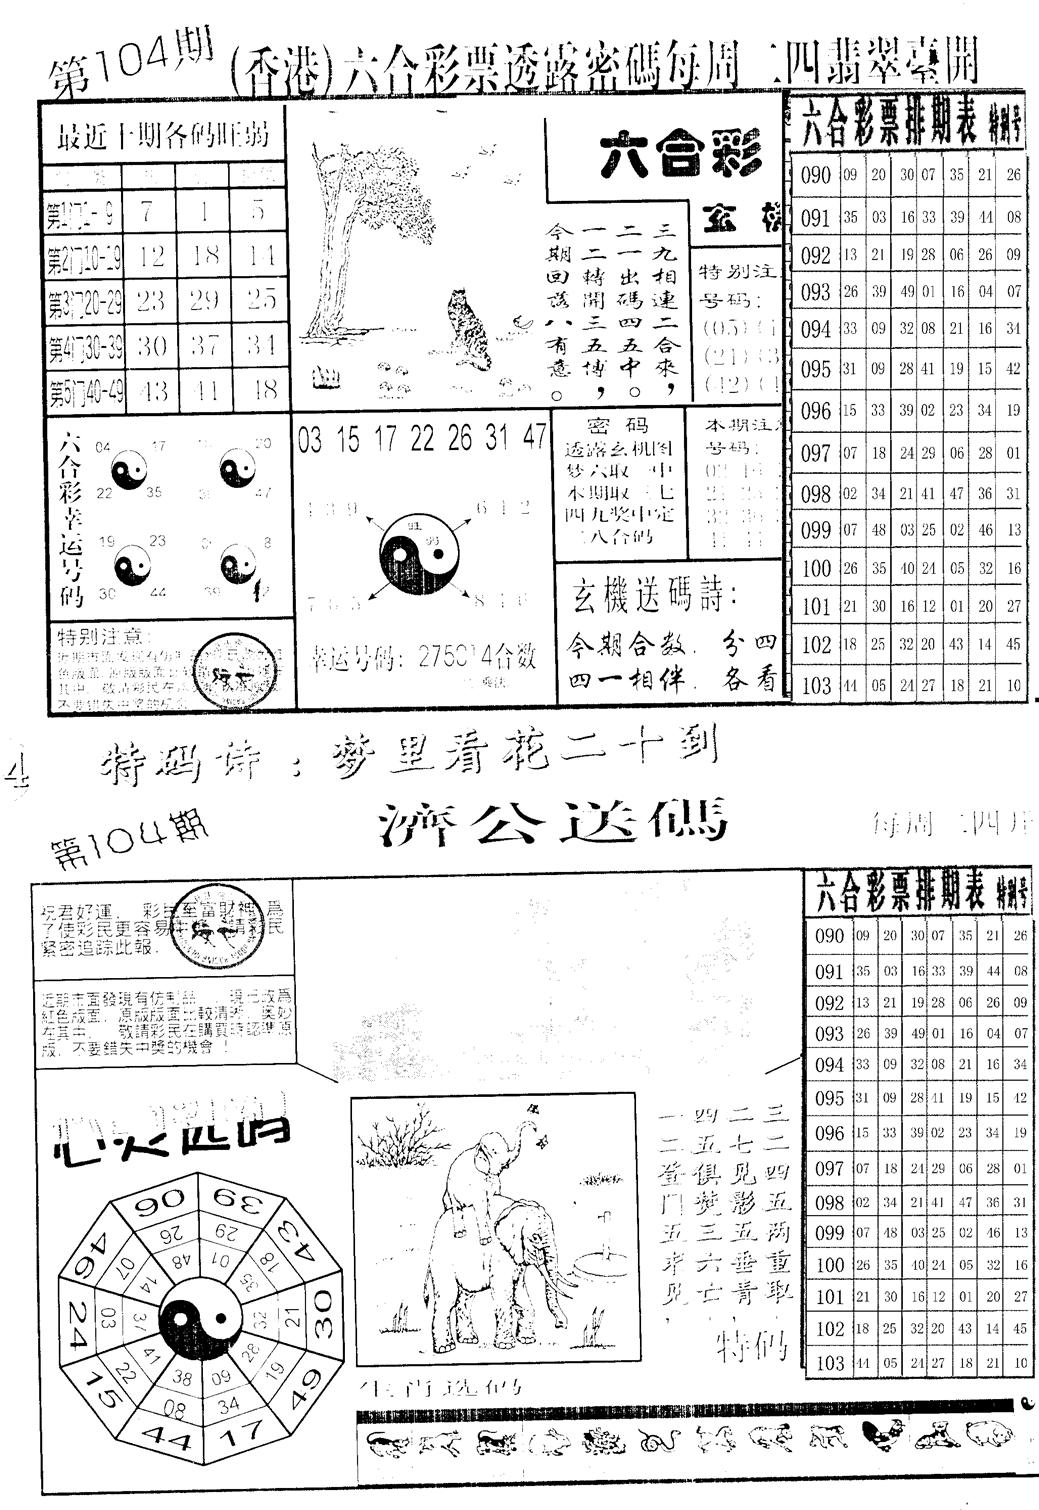 第104期
(香港)六合彩票透露密碼每周二四翡翠臺開
最近十期各码旺弱
第1门1-9 7 1 5
第2门10-19 12 18 14
第3门20-29 23 29 25
第4门30-39 30 37 34
第5门40-49 43 41 48
六合彩
玄機
三九相連二合來，
二一出碼四五中。
一二轉開三五博，
今期回落八有意。
特别注
号码：
(05)
(21)
(42)
六合彩票排期表 特别号
090 09 20 30 07 35 21 26
091 35 03 16 33 39 44 08
092 13 21 19 28 06 26 09
093 26 39 49 01 16 04 07
094 33 09 32 08 21 16 34
095 31 09 28 41 19 15 42
096 15 33 39 02 23 34 19
097 07 18 24 29 06 28 01
098 02 34 21 41 47 36 31
099 07 48 03 25 02 46 13
100 26 35 40 24 05 32 16
101 21 30 16 12 01 20 27
102 18 25 32 20 43 14 45
103 44 05 24 27 18 21 10
六合彩幸运号码
04 17
22 35
20
47
19 23
30 44
8
39
03 15 17 22 26 31 47
4 3 9
6 1 2
7 6 5
8 1 0
幸运号码：275814合数
密码
透露玄机图
梦六取一中
本期取三七
四九奖中定
二八合码
本期注
号码：
玄機送碼詩：
今期合数．分四
四一相伴．各看
特别注意：
4 特码诗：梦里看花二十到
第104期
濟公送碼
每周二四开
祝君好運，彩民至富財神，爲
了使彩民更容易中 請彩民
緊密追踪此報．
近期市面發現有仿制品，現已改爲
紅色版面，原版版面比較清晰，奥妙
在其中，敬請彩民在購買時認準原
版，不要錯失中獎的機會！
06 39 43 30 49 17 44 15 24 46
26 29 18 21 19 34 08 22 03 07
48 01 35 32 28 09 38 41 37 14
三二四五两重取
二七见影五垂青
四五俱焚三六亡
一二登门五来见
特码
生肖选码
六合彩票排期表 特别号
090 09 20 30 07 35 21 26
091 35 03 16 33 39 44 08
092 13 21 19 28 06 26 09
093 26 39 49 01 16 04 07
094 33 09 32 08 21 16 34
095 31 09 28 41 19 15 42
096 15 33 39 02 23 34 19
097 07 18 24 29 06 28 01
098 02 34 21 41 47 36 31
099 07 48 03 25 02 46 13
100 26 35 40 24 05 32 16
101 21 30 16 12 01 20 27
102 18 25 32 20 43 14 45
103 44 05 24 27 18 21 10